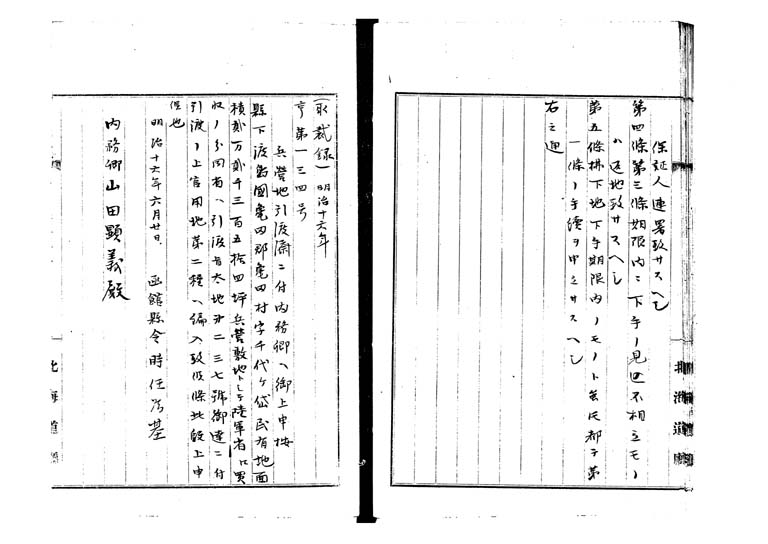 保証人連署致サスヘシ
第四條第三條期限内ニ下手ノ見込不相立モノ
ハ返地致サスヘシ
第五條拂下地下手期限内ノモノト雖氏都テ第
一條ノ手續ヲ申立サスヘシ
右之通
北海道
(取裁録) 明治十六年
亨第一三四号
兵營地引渡濟ニ付内務卿ヘ御上申按
縣下渡島國亀田郡亀田村字千代ケ岱民有地面
積貳万貳千三百五拾四坪兵營敷地トシテ陸軍省ニ買
收ノ分同省ヘ引渡旨太地第二三七號御達ニ付
引渡ノ上官用地第二種ヘ編入致候條此段上申
候也
明治十六年六月廿日 函館縣令時任為基
内務卿山田顕義殿
北海道